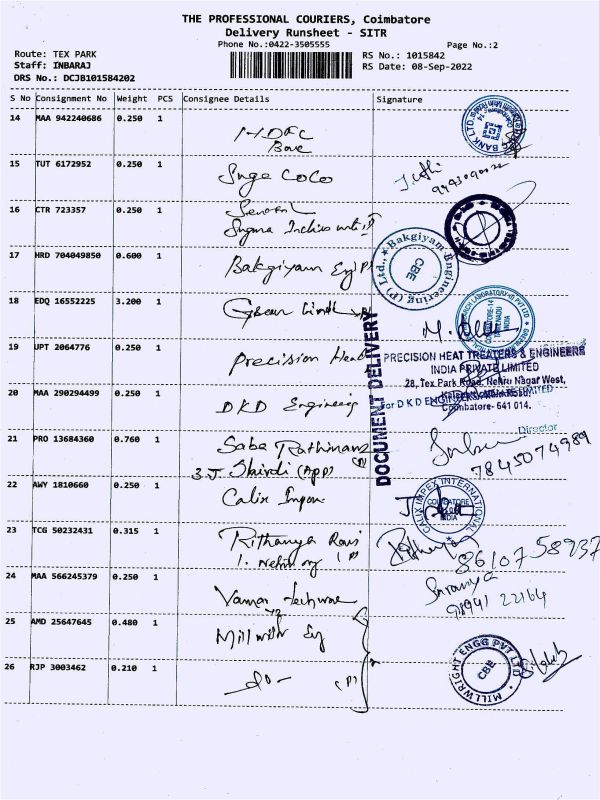 THE PROFESSIONAL COURIERS, Coimbatore
Delivery Runsheet - SITR
Phone No.:0422-3505555
Page No.:2
Route: TEX PARK
RS No.: 1015842
Staff: INBARAJ
RS Date: 08-Sep-2022
DRS No.: DCJB101584202
S No Consignment No Weight PCS Consignee Details Signature
14 MAA 942240686 0.250 1 HDFC
15 TUT 6172952 0.250 1 CoCo
16 CTR 723357 0.250 1
17 HRD 704049850 0.600 1 Bakgiyam
Bakgiyam Engineering (P) Ltd.,
CBE
18 EDQ 16552225 3.200 1 Green
19 UPT 2064776 0.250 1 Precision Heat
DOCUMENT DELIVERY
PRECISION HEAT TREATERS & ENGINEERS
INDIA PRIVATE LIMITED
28, Tex Park Road, Nehru Nagar West,
Coimbatore- 641 014.
20 MAA 290294499 0.250 1 DKD Engineering
For D K D ENGINEERS
Director
21 PRO 13684360 0.760 1 Saba Rathinam
7845074989
3 J. Shirdi (App)
22 AWY 1810660 0.250 1 Calix Impex
CALIX IMPEX INTERNATIONAL
COIMBATORE
INDIA
23 TCG 50232431 0.315 1 Rithanya
86107 58937
24 MAA 566245379 0.250 1
Saranya
98941 22164
25 AMD 25647645 0.480 1 Millwright
26 RJP 3003462 0.210 1 -do-
(P)
MILLWRIGHT ENGG PVT LTD
CBE